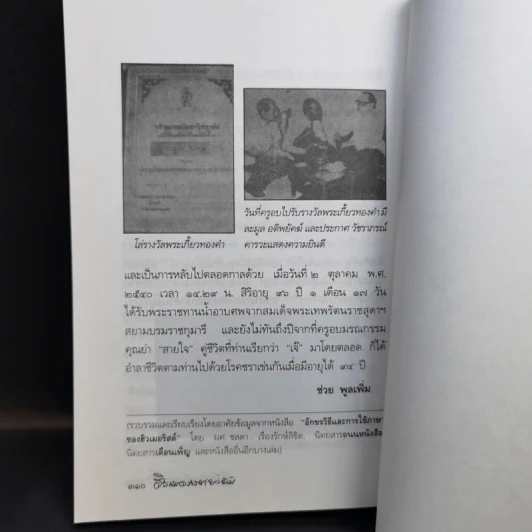 วันที่ครูอบไปรับรางวัลพระเกี้ยวทองคำ มี
ละมูล อติพยัคฆ์ และประกาศ วัชราภรณ์
คารวะแสดงความยินดี
โล่รางวัลพระเกี้ยวทองคำ
และเป็นการหลับไปตลอดกาลด้วย เมื่อวันที่ ๒ ตุลาคม พ.ศ.
๒๕๔๐ เวลา ๑๔.๒๙ น. สิริอายุ ๙๖ ปี ๑ เดือน ๑๗ วัน
ได้รับพระราชทานน้ำอาบศพจากสมเด็จพระเทพรัตนราชสุดาฯ
สยามบรมราชกุมารี และยังไม่ทันถึงปีจากที่ครูอบมรณกรรม
คุณย่า "สายใจ" คู่ชีวิตที่ท่านเรียกว่า "เจ๊" มาโดยตลอด ก็ได้
อำลาชีวิตตามท่านไปด้วยโรคชราเช่นกันเมื่อมีอายุได้ ๙๔ ปี
ช่วย พูลเพิ่ม
(รวบรวมและเรียบเรียงโดยอาศัยข้อมูลจากหนังสือ "อักขรวิธีและการใช้ภาษา
ของฮิวเมอริสต์" โดย ผศ. ชลดา เรืองรักษ์ลิขิต, นิตยสารถนนหนังสือ
นิตยสารเดือนเพ็ญ และหนังสืออื่นอีกบางเล่ม)
๓๑๐